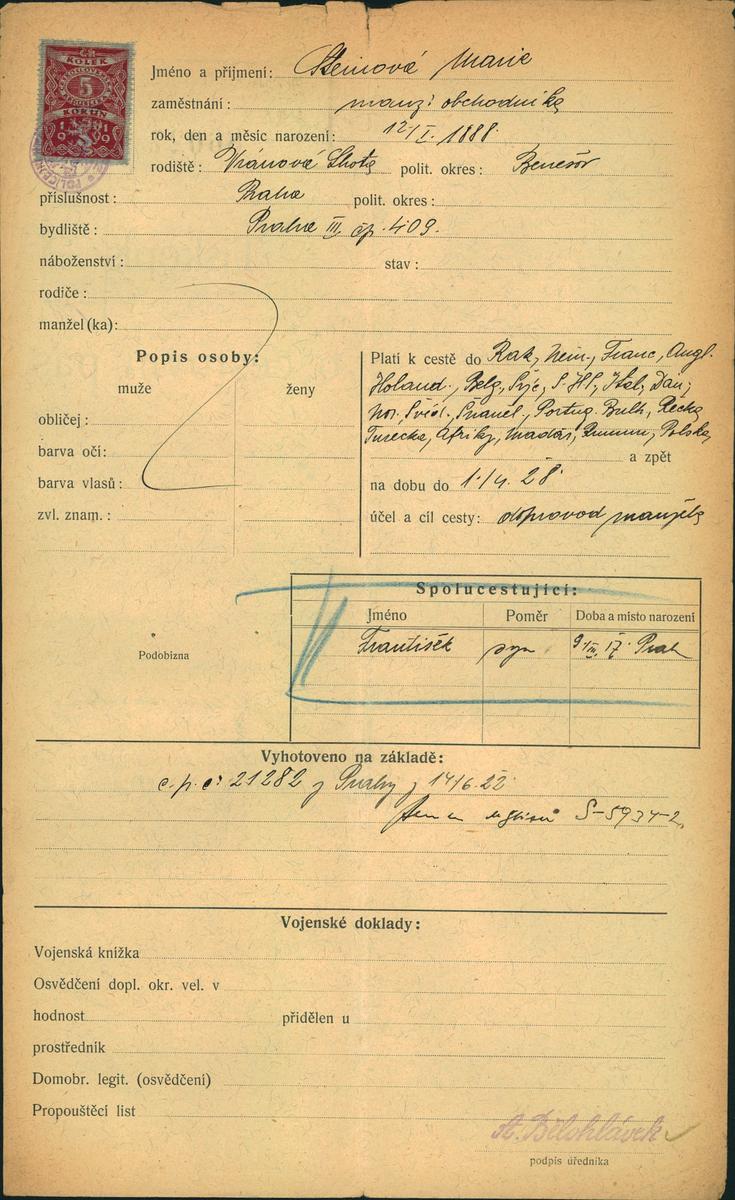 KOLEK
5
KORUN
Jméno a příjmení: Steinová Marie
zaměstnání: manž. obchodníka
rok, den a měsíc narození: 12/I. 1888.
rodiště: Vránová Lhota polit. okres: Benešov
příslušnost: Praha polit. okres:
bydliště: Praha III. čp. 409.
náboženství: stav:
rodiče:
manžel (ka):
Popis osoby:
muže ženy
obličej:
barva očí:
barva vlasů:
zvl. znam.:
Platí k cestě do Rak, Něm., Franc, Angl.
Holand., Belg, Švýc, S.HS, Ital, Dán,
Nor, Švéd, Španěl, Portug. Bulh, Řecka
Turecka, Afriky, Maďar, Rumun, Polska,
a zpět
na dobu do 1./4. 28.
účel a cíl cesty: doprovod manžela
Spolucestující:
Jméno Poměr Doba a místo narození
František syn 17. Praha
Podobizna
Vyhotoveno na základě:
c.p. č. 21282 z Prahy z 14/6. 22.
S-5934-2,
Vojenské doklady:
Vojenská knížka
Osvědčení dopl. okr. vel. v
hodnost přidělen u
prostředník
Domobr. legit. (osvědčení)
Propouštěcí list
A. Bělohlávek
podpis úředníka